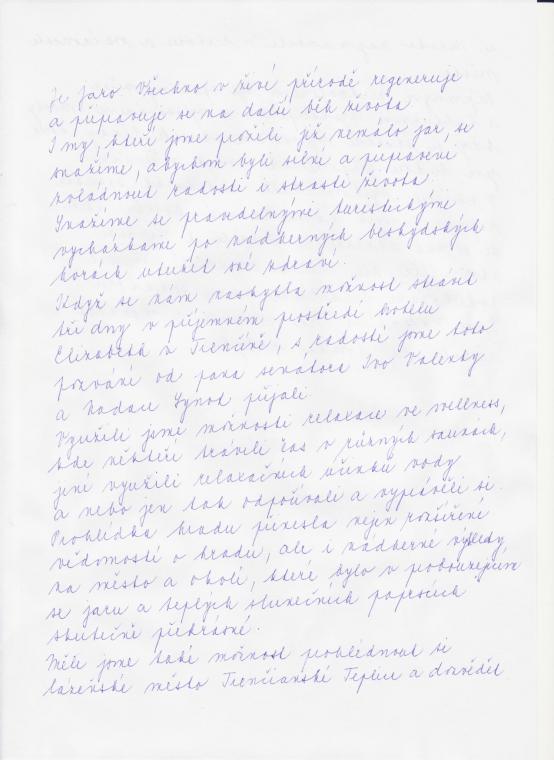 Je jaro Všechno v živé přírodě regeneruje
a připravuje se na další běh života
I my, kteří jsme prožili již nemálo jar, se
snažíme, abychom byli silní a připaveni
zvládnout radosti i strasti života.
Snažíme se pravidelnými turistickými
vycházkami po nádherných beskydských
horách utužit své zdraví.
Když se nám naskytla možnost strávit
tři dny v příjemném prostředí hotelu
Elizabeth v Trenčíně, s radostí jsme toto
pozvání od pana senátora Ivo Valenty
a Nadace Synot přijali
Využili jsme možnosti relaxace ve wellness,
kde někteří trávili čas v různých saunách,
jiní využili relaxačních účinků vody
a nebo jen tak odpočívali a vyprávěli si.
Prohlídka hradu přinesla nejen rozšíření
vědomostí o hradu, ale i nádherné výhledy
na město a okolí, které bylo v probouzejícím
se jaru a teplých slunečních paprscích
skutečně překrásné.
Měli jsme také možnost prohlédnout si
lázeňské město Trenčianské Teplice a dozvědět